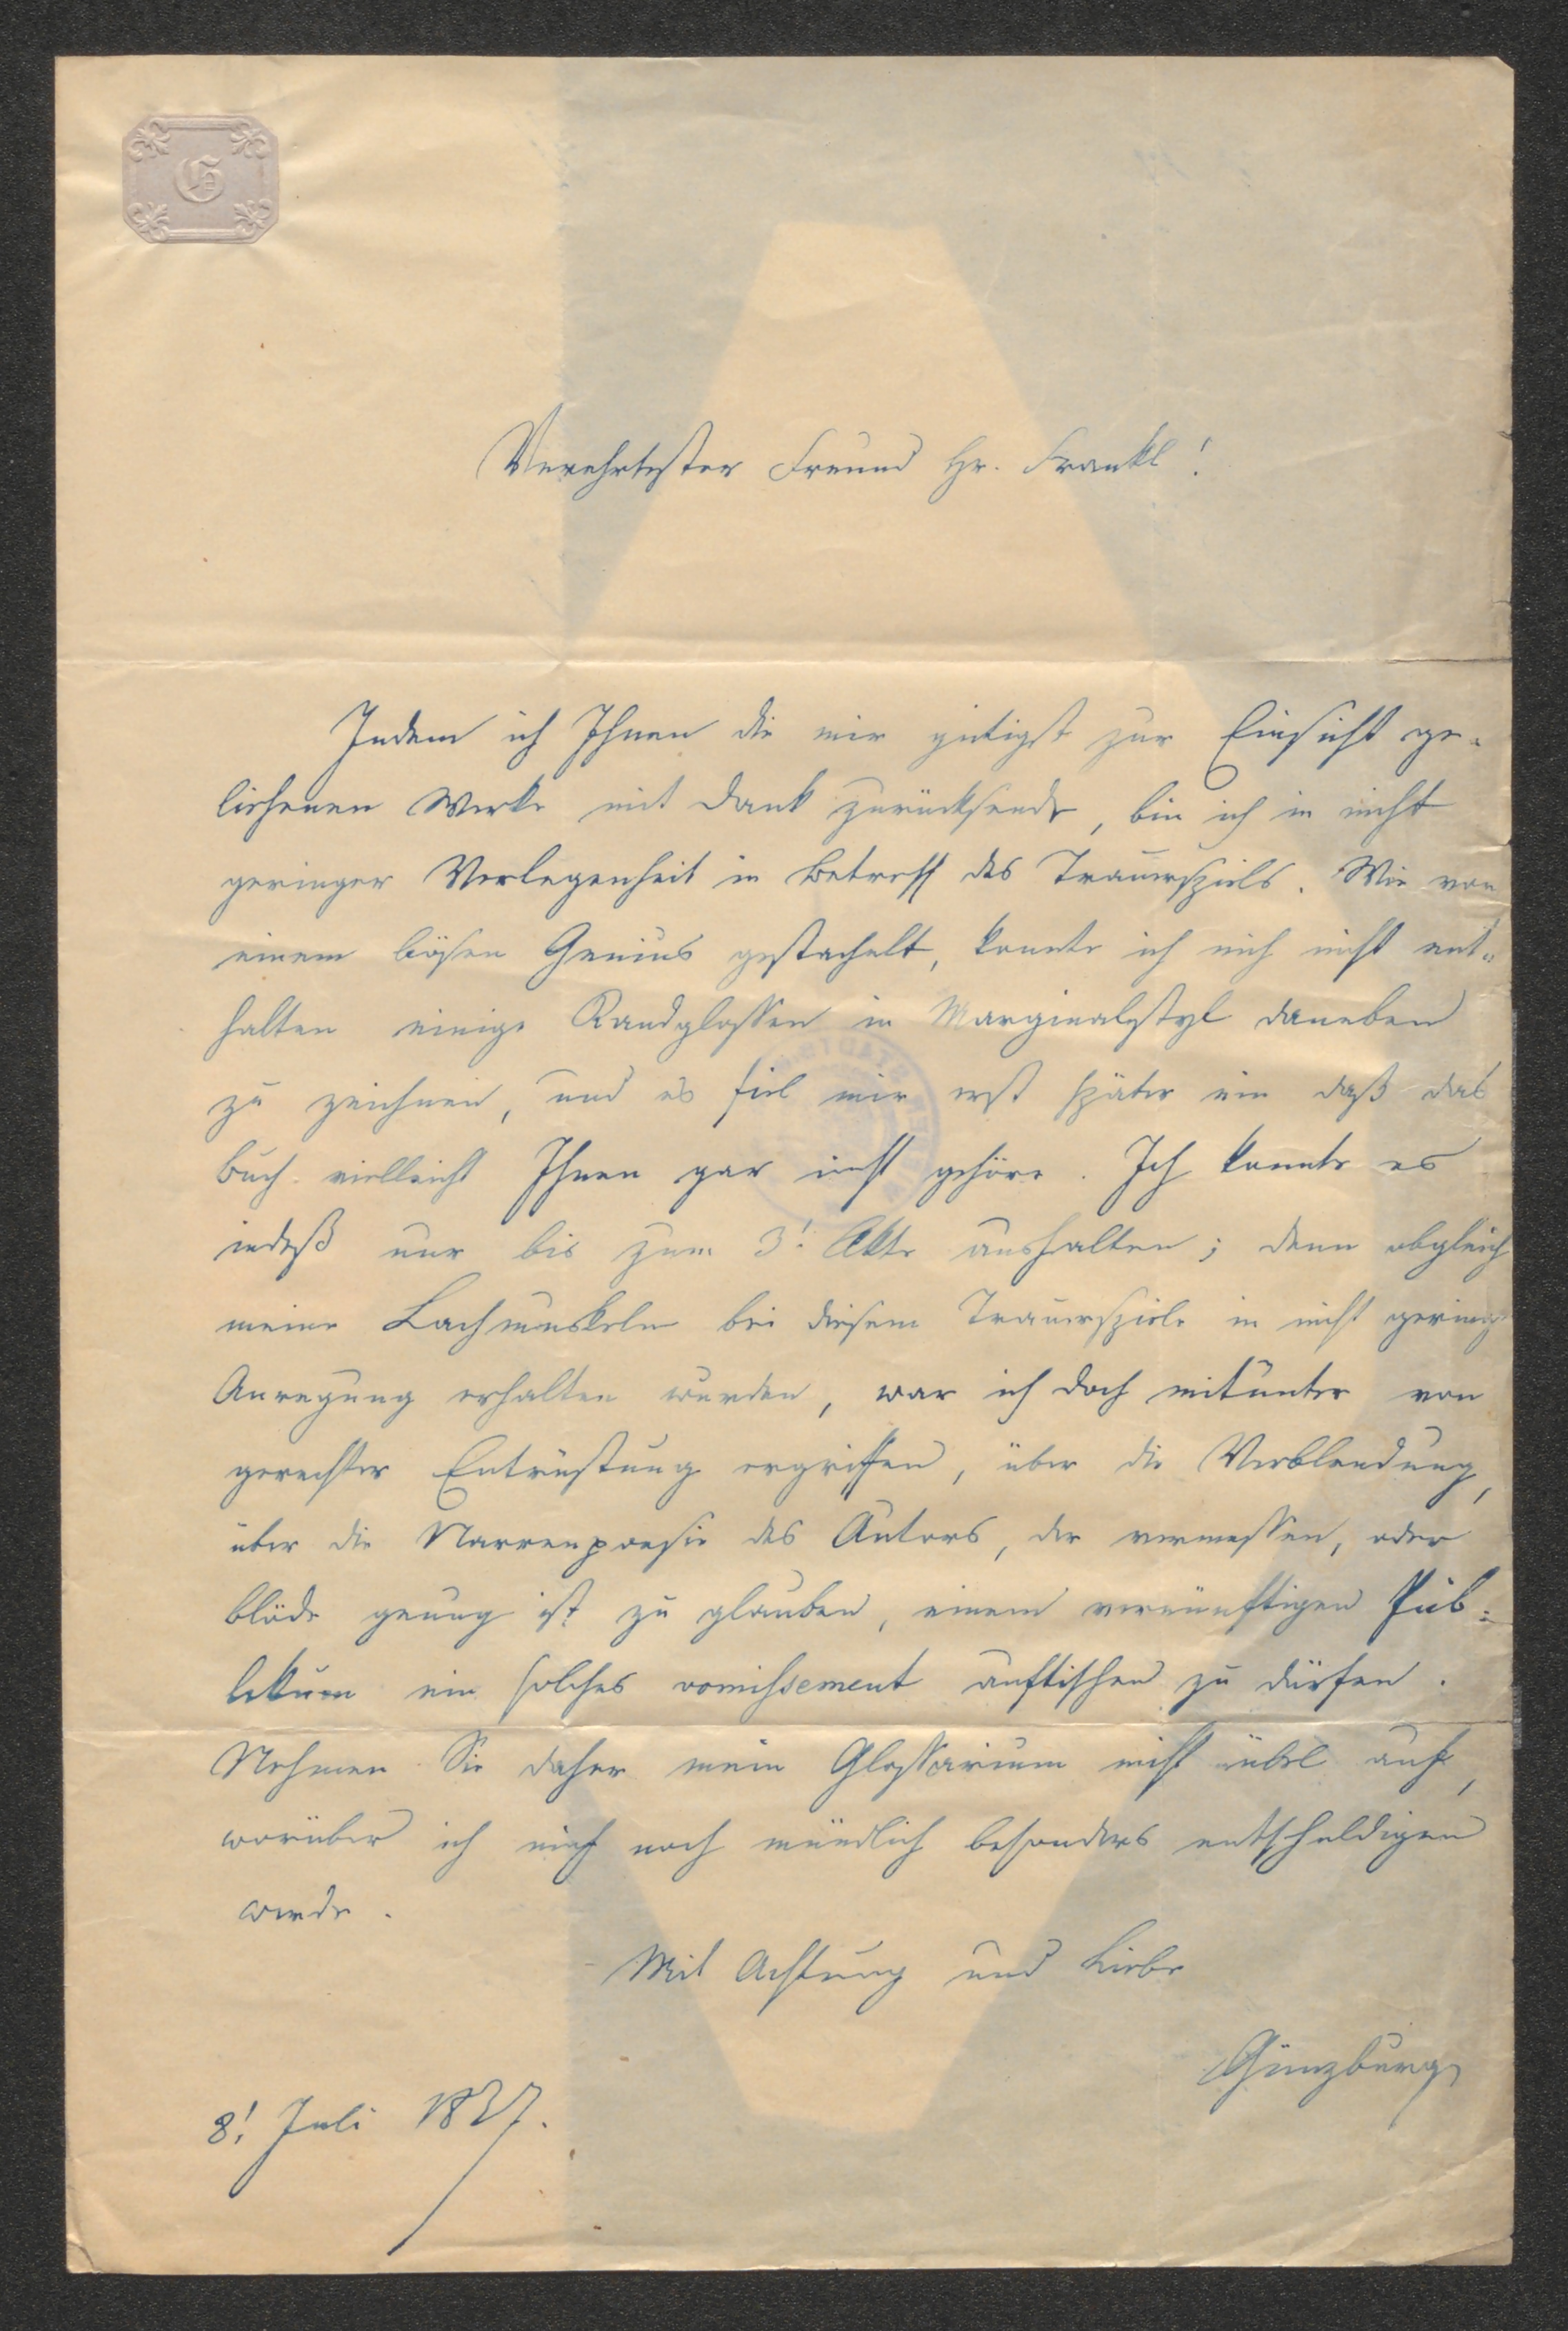 G
Verehrtester Freund Hr. Frankl!
Indem ich Ihnen die mir gütigst zur Einsicht ge-
liehenen Werke mit Dank zurücksende, bin ich in nicht
geringer Verlegenheit in Betreff des Trauerspiels. Wie von
einem bösen Genius gestachelt, konnte ich mich nicht ent-
halten einige Randglossen in Marginalstyl daneben
zu zeichnen, und es fiel mir erst später ein daß das
Buch vielleicht Ihnen gar nicht gehöre. Ich konnte es
indeß nur bis zum 3! Akte aushalten; denn obgleich
meine Lachmuskeln bei diesem Trauerspiele in nicht gering
Anregung erhalten wurden, war ich doch mitunter von
gerechter Entrüstung ergriffen, über die Verblendung,
über die Narrenpoesie des Autors, der vermessen, oder
blöde genug ist zu glauben, einem vernünftigen Pub-
likum ein solches vomissement auftischen zu dürfen.
Nehmen Sie daher mein Glossarium nicht übel auf,
worüber ich mich noch mündlich besonders entschuldigen
werde.
Mit Achtung und Liebe
Günzburg
8! Juli 1837.